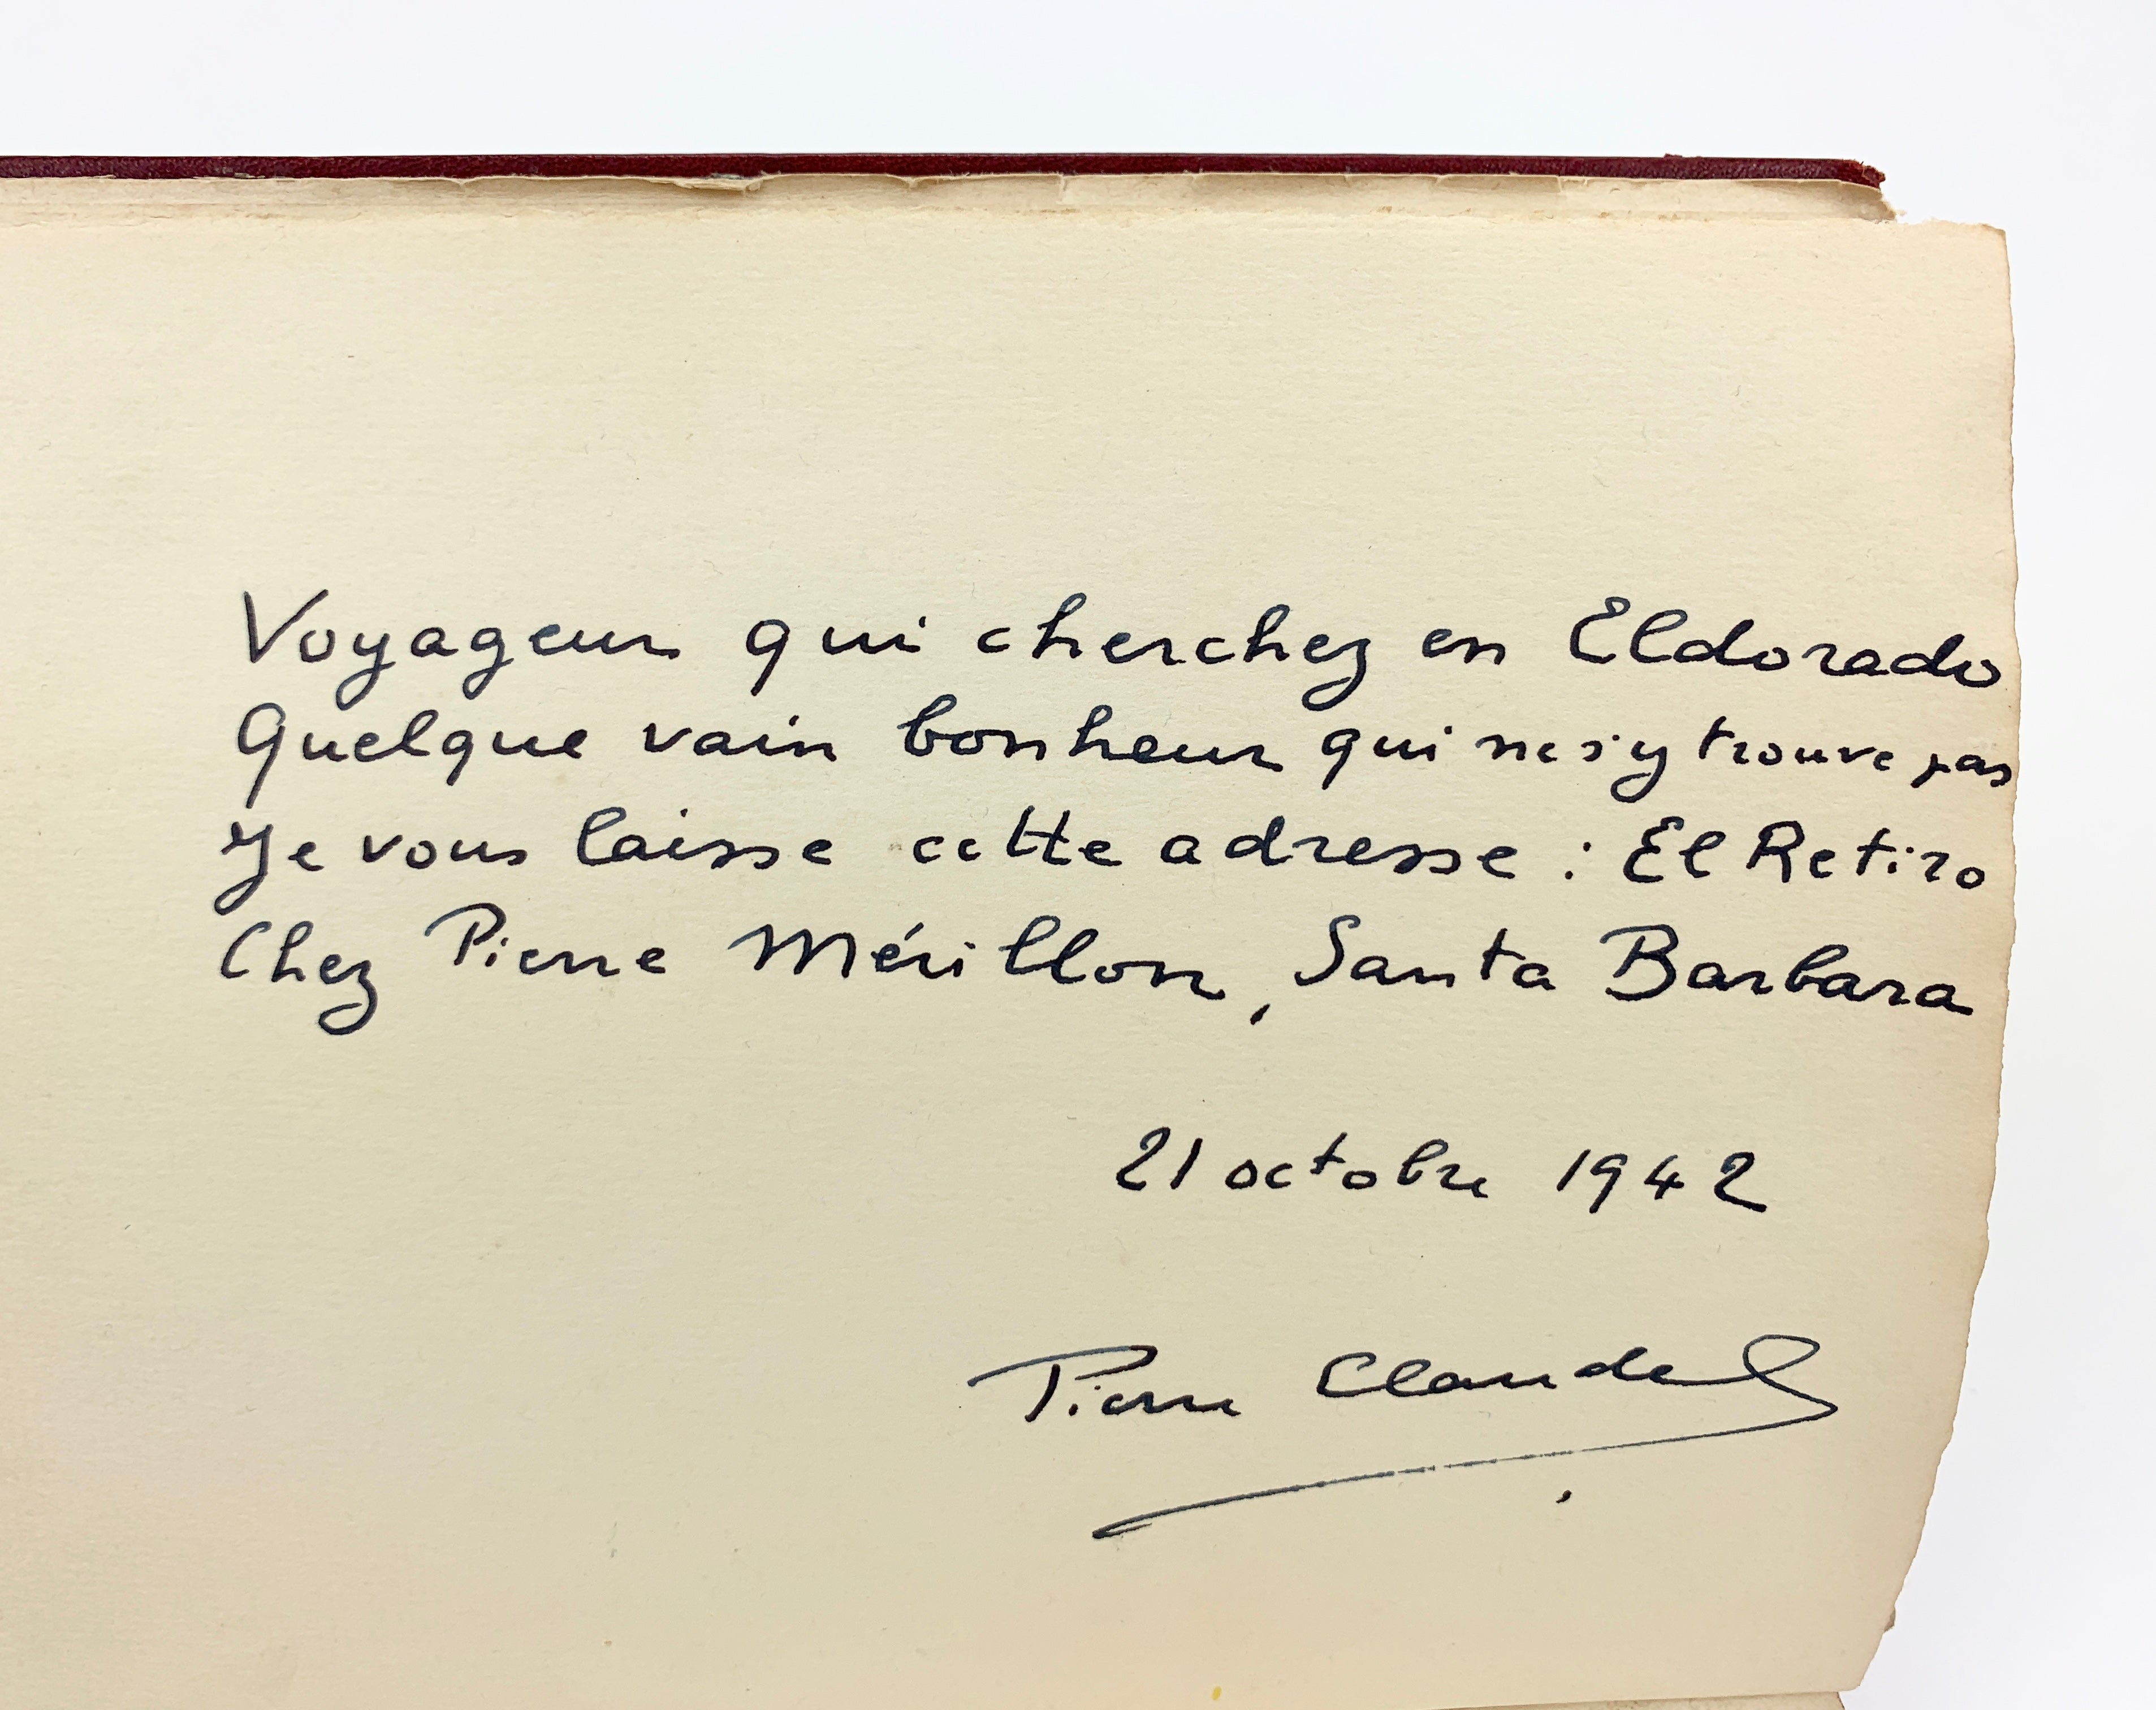 Voyageur qui cherchez en Eldorado
Quelque vain bonheur qui ne s'y trouve pas
Je vous laisse cette adresse : El Retiro
Chez Pierre Mérillon, Santa Barbara
21 octobre 1942
Pierre Claudel